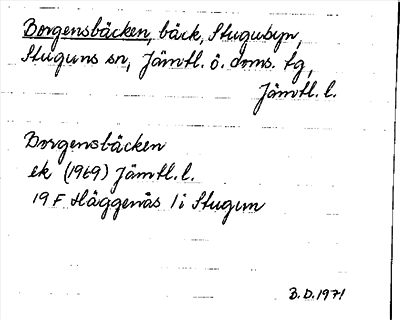 Borgensbäcken, bäck, Stugubyn,
Stuguns sn, Jämtl. ö. doms. tg,
Jämtl. l.
Borgensbäcken
ek (1969) Jämtl. l.
19 F Häggenås 1 i Stugun
B.D. 1971